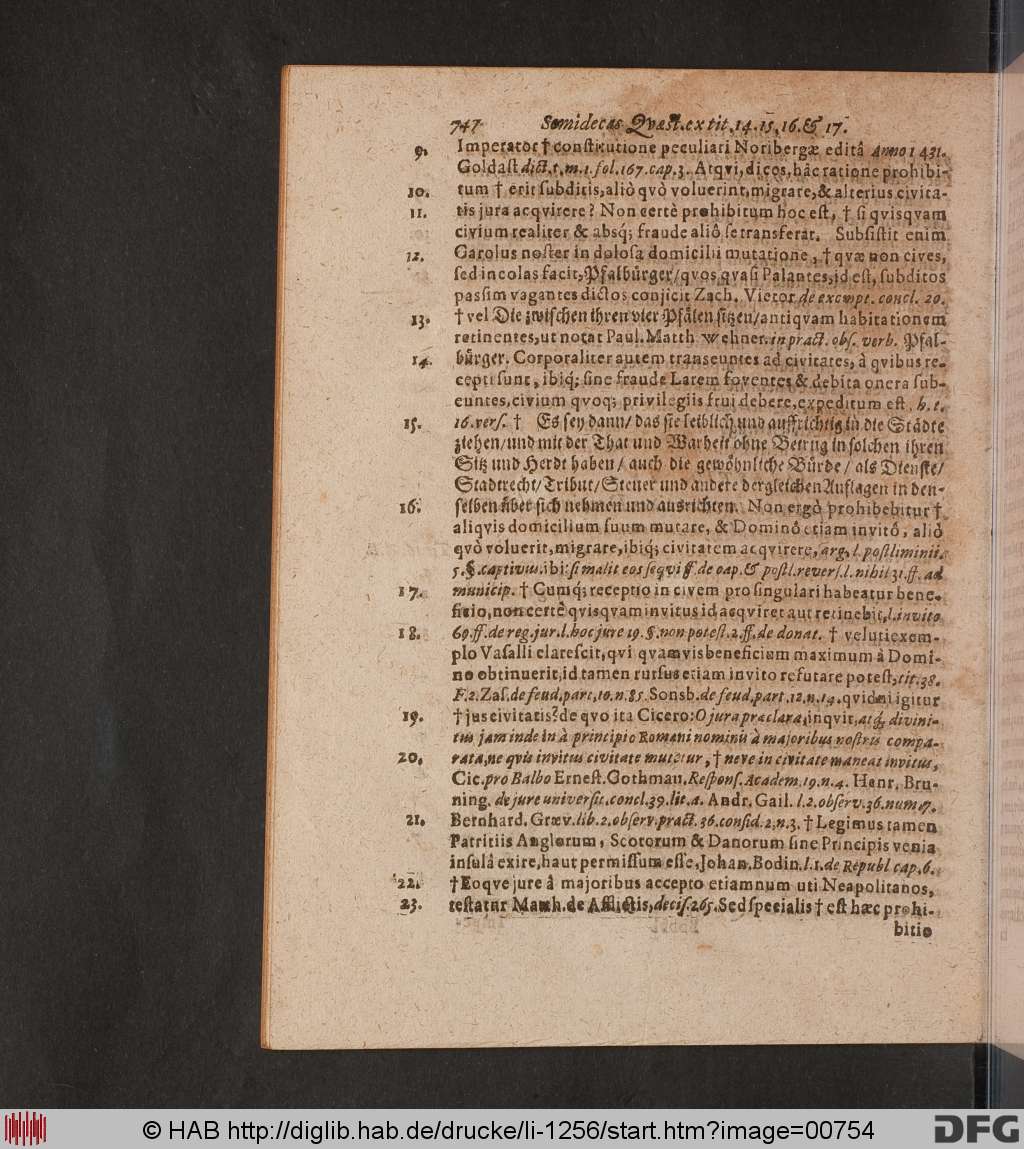 747 Semidecas Qvæst. ex tit. 14. 15. 16. & 17.
9. Imperator † constitutione peculiari Noribergæ editâ Anno 1431.
Goldast dict. t. m. 1. fol. 167. cap. 3. Atqvi, dices, hâc ratione prohibi-
10. tum † erit subditis, aliò qvò voluerint, migrare, & alterius civita-
11. tis jura acqvirere? Non certè prohibitum hoc est, † si qvisqvam
civium realiter & absq; fraude aliò se transferat. Subsistit enim
12. Carolus noster in dolosa domicilii mutatione, † qvæ non cives,
sed incolas facit, Pfalbürger/ qvos qvasi Palantes, id est, subditos
passim vagantes dictos conjicit Zach. Vietor de exempt. concl. 20.
13. † vel Die zwischen ihren vier Pfälen sitzen/ antiqvam habitationem
retinentes, ut notat Paul. Matth. Wehner. in pract. obs. verb. Pfal-
14. bürger. Corporaliter autem transeuntes ad civitates, à qvibus re-
cepti sunt, ibiq; sine fraude Larem foventes & debita onera sub-
euntes, civium qvoq; privilegiis frui debere, expeditum est, h. t.
15. 16. vers. † Es sey dann/ das sie leiblich und auffrichtig in die Städte
ziehen/ und mit der That und Warheit ohne Betrug in solchen ihren
Sitz und Herdt haben/ auch die gewöhnliche Bürde/ als Dienste/
Stadtrecht/ Tribut/ Steuer und andere dergleichen Auflagen in den-
16. selben über sich nehmen und ausrichten. Non ergò prohibebitur †
aliqvis domicilium suum mutare, & Dominô etiam invitô, aliò
qvò voluerit, migrare, ibiq; civitatem acqvirere, arg. l. postliminii.
5. §. captivus. ibi: si malit eos seqvi ff. de cap. & postl. revers. l. nihil 31. ff. ad
17. municip. † Cumq; receptio in civem pro singulari habeatur bene-
ficio, non certê qvisqvam invitus id acqviret aut retinebit, l. invito
18. 69. ff. de reg. jur. l. hoc jure 19. §. non potest. 2. ff. de donat. † veluti exem-
plo Vasalli clarescit, qvi qvamvis beneficium maximum à Domi-
no obtinuerit, id tamen rursus etiam invito refutare potest, tit. 38.
F. 2. Zas. de feud. part. 10. n. 85. Sonsb. de feud. part. 12. n. 14. qvidni igitur
19. † jus civitatis? de qvo ita Cicero: O jura præclara, inqvit, atq; divini-
tus jam inde in à principio Romani nominis à majoribus nostris compa-
20. rata, ne qvis invitus civitate mutetur, † neve in civitate maneat invitus,
Cic. pro Balbo Ernest. Cothman. Respons. Academ. 19. n. 4. Henr. Bru-
ning. de jure universit. concl. 39. lit. a. Andr. Gail. l. 2. observ. 36. num. 7.
21. Bernhard. Græv. lib. 2. observ. pract. 36. consid. 2. n. 3. † Legimus tamen
Patritiis Anglorum, Scotorum & Danorum sine Principis venia
insulâ exire, haut permissum esse, Johan. Bodin. l. 1. de Republ cap. 6.
22. † Eoqve jure â majoribus accepto etiamnum uti Neapolitanos,
23. testatur Matth. de Afflictis, decis. 265. Sed specialis † est hæc prohi-
bitio
© HAB http://diglib.hab.de/drucke/li-1256/start.htm?image=00754
DFG